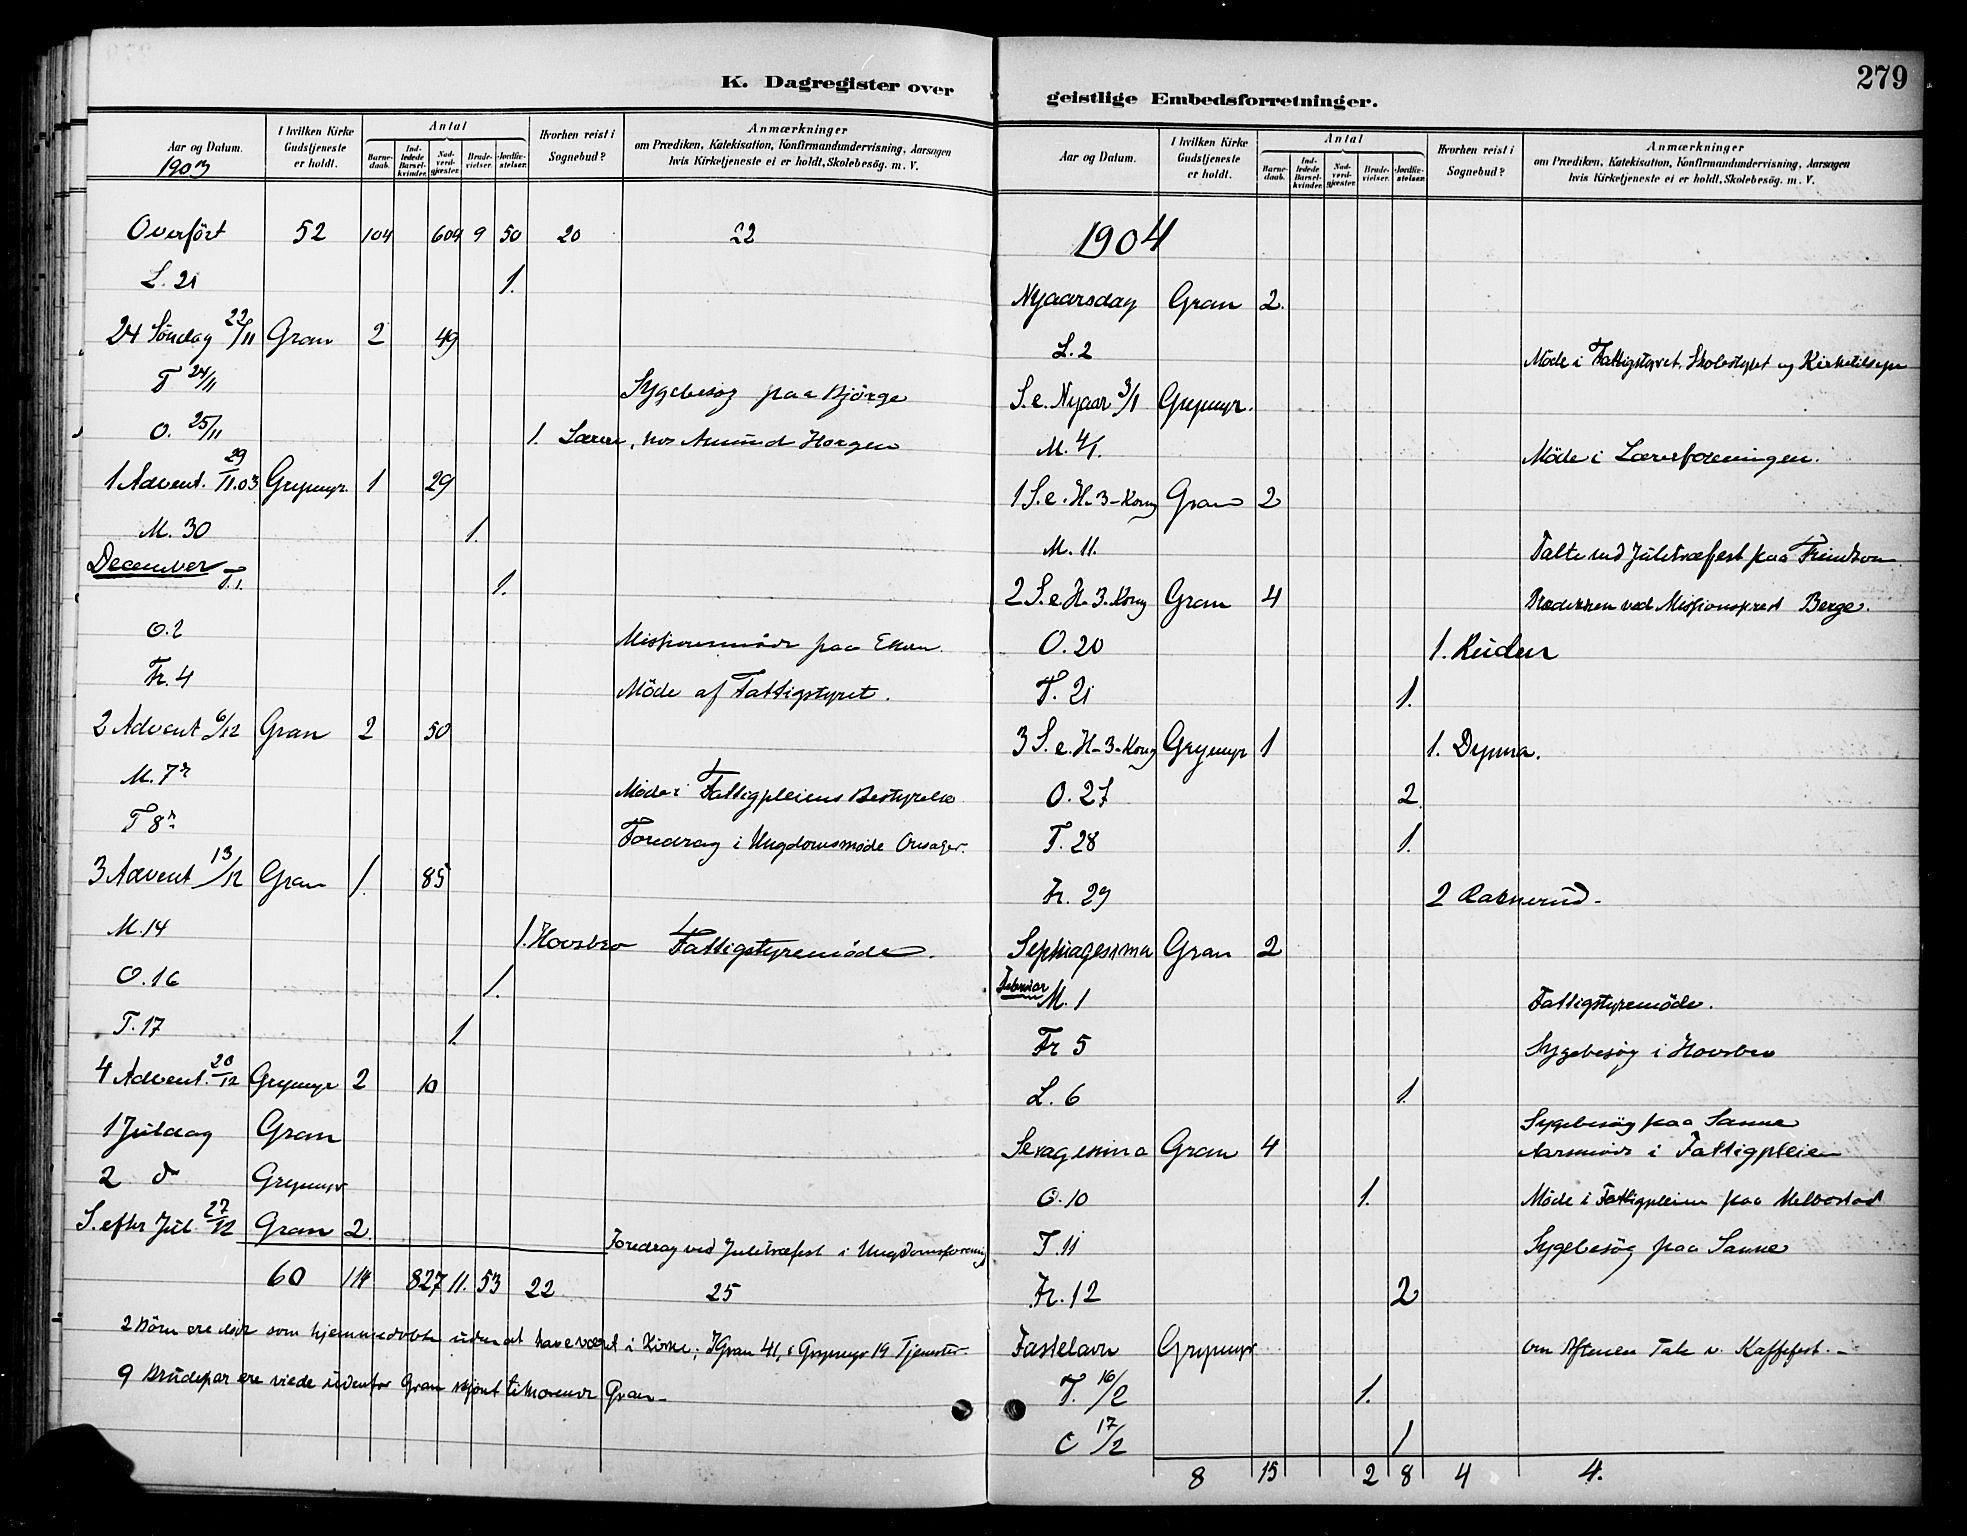 K. Dagregister over
Aar og Datum. | I hvilken Kirke Gudstjeneste er holdt. | Antal | Barne-daab. | Ind-ledede Barsel-kvinder. | Nad-verd-gjæster. | Brude-vielser. | Jordfæ-stelser. | Hvorhen reist i Sognebud? | Anmærkninger om Prædiken, Katekisation, Konfirmandundervisning, Aarsagen hvis Kirketjeneste ei er holdt, Skolebesög. m. V.
1903
Overført 52 104 609 9 50 20 22
L. 21 1.
24 Søndag 22/11 Gran 2 49
T 24/11 Sygebesøg paa Bjørge
O. 25/11 1. Lærer, hos Amund Horgen
1 Advent. 29/11.03 Grymyr. 1 29
M. 30 1.
December T. 1. 1.
O. 2 Missionsmøde paa
Fr. 4 Møde af Fattigstyret.
2 Advent 6/12 Gran 2 50
M. 7 Møde i Fattigpleiens Bestyrelse
T 8 Foredrag i Ungdomsmøde
3 Advent 13/12 Gran 1. 85
M. 14 1. Hovsbro Fattigstyremøde.
O. 16 1.
T. 17 1.
4 Advent. 20/12 Grymyr 2 10
1 Juledag Gran
2 do Grymyr
S. efter Jul. 27/12 Gran 2. Foredrag ved Juletræfest i Ungdomsforening
60 114 827 11. 53 22 25
2 Børn ere døde som hjemmedøbte uden at have været i Kirke; I Gran 41, i Grymyr 19 Tjenester
9 Brudepar ere viede udenfor Gran skjønt tilhørende Gran.
279
geistlige Embedsforretninger.
Aar og Datum. | I hvilken Kirke Gudstjeneste er holdt. | Antal | Barne-daab. | Ind-ledede Barsel-kvinder. | Nad-verd-gjæster. | Brude-vielser. | Jordfæ-stelser. | Hvorhen reist i Sognebud? | Anmærkninger om Prædiken, Katekisation, Konfirmandundervisning, Aarsagen hvis Kirketjeneste ei er holdt, Skolebesög. m. V.
1904
Nyaarsdag Gran 2.
L. 2 Møde i Fattigstyret, Skolestyret og Kirketilsyn
S. e. Nyaar 3/1 Grymyr.
M. 4/1. Møde i Lærerforeningen.
1 S. e. H. 3-Kong Gran 2
M. 11. Talte ved Juletræfest paa
2 S. e. H. 3. Kong Gran 4 Prædiken ved Missionsprest Berge.
O. 20 1. Ruden
T. 21 1.
3 S. e. H-3-Kong Grymyr 1 1. Dynna.
O. 27 2
T. 28 1.
Fr. 29 2 Raknerud.
Septuagesima Gran 2
Februar M. 1 Fattigstyremøde.
Fr 5 Sygebesøg i Hovsbro
L. 6 1.
Sygebesøg paa Sanne
Sexagesima Gran 4 Aarsmøde i Fattigpleien
O. 10 1. Møde i Fattigpleien paa Melbostad
T. 11 Sygebesøg paa Sanne
Fr. 12 2
Fastelavn Grymyr Om Aftenen Tale v. Kaffefest.
T. 16/2 1.
O 17/2 1
8 15 2 8 4 4.